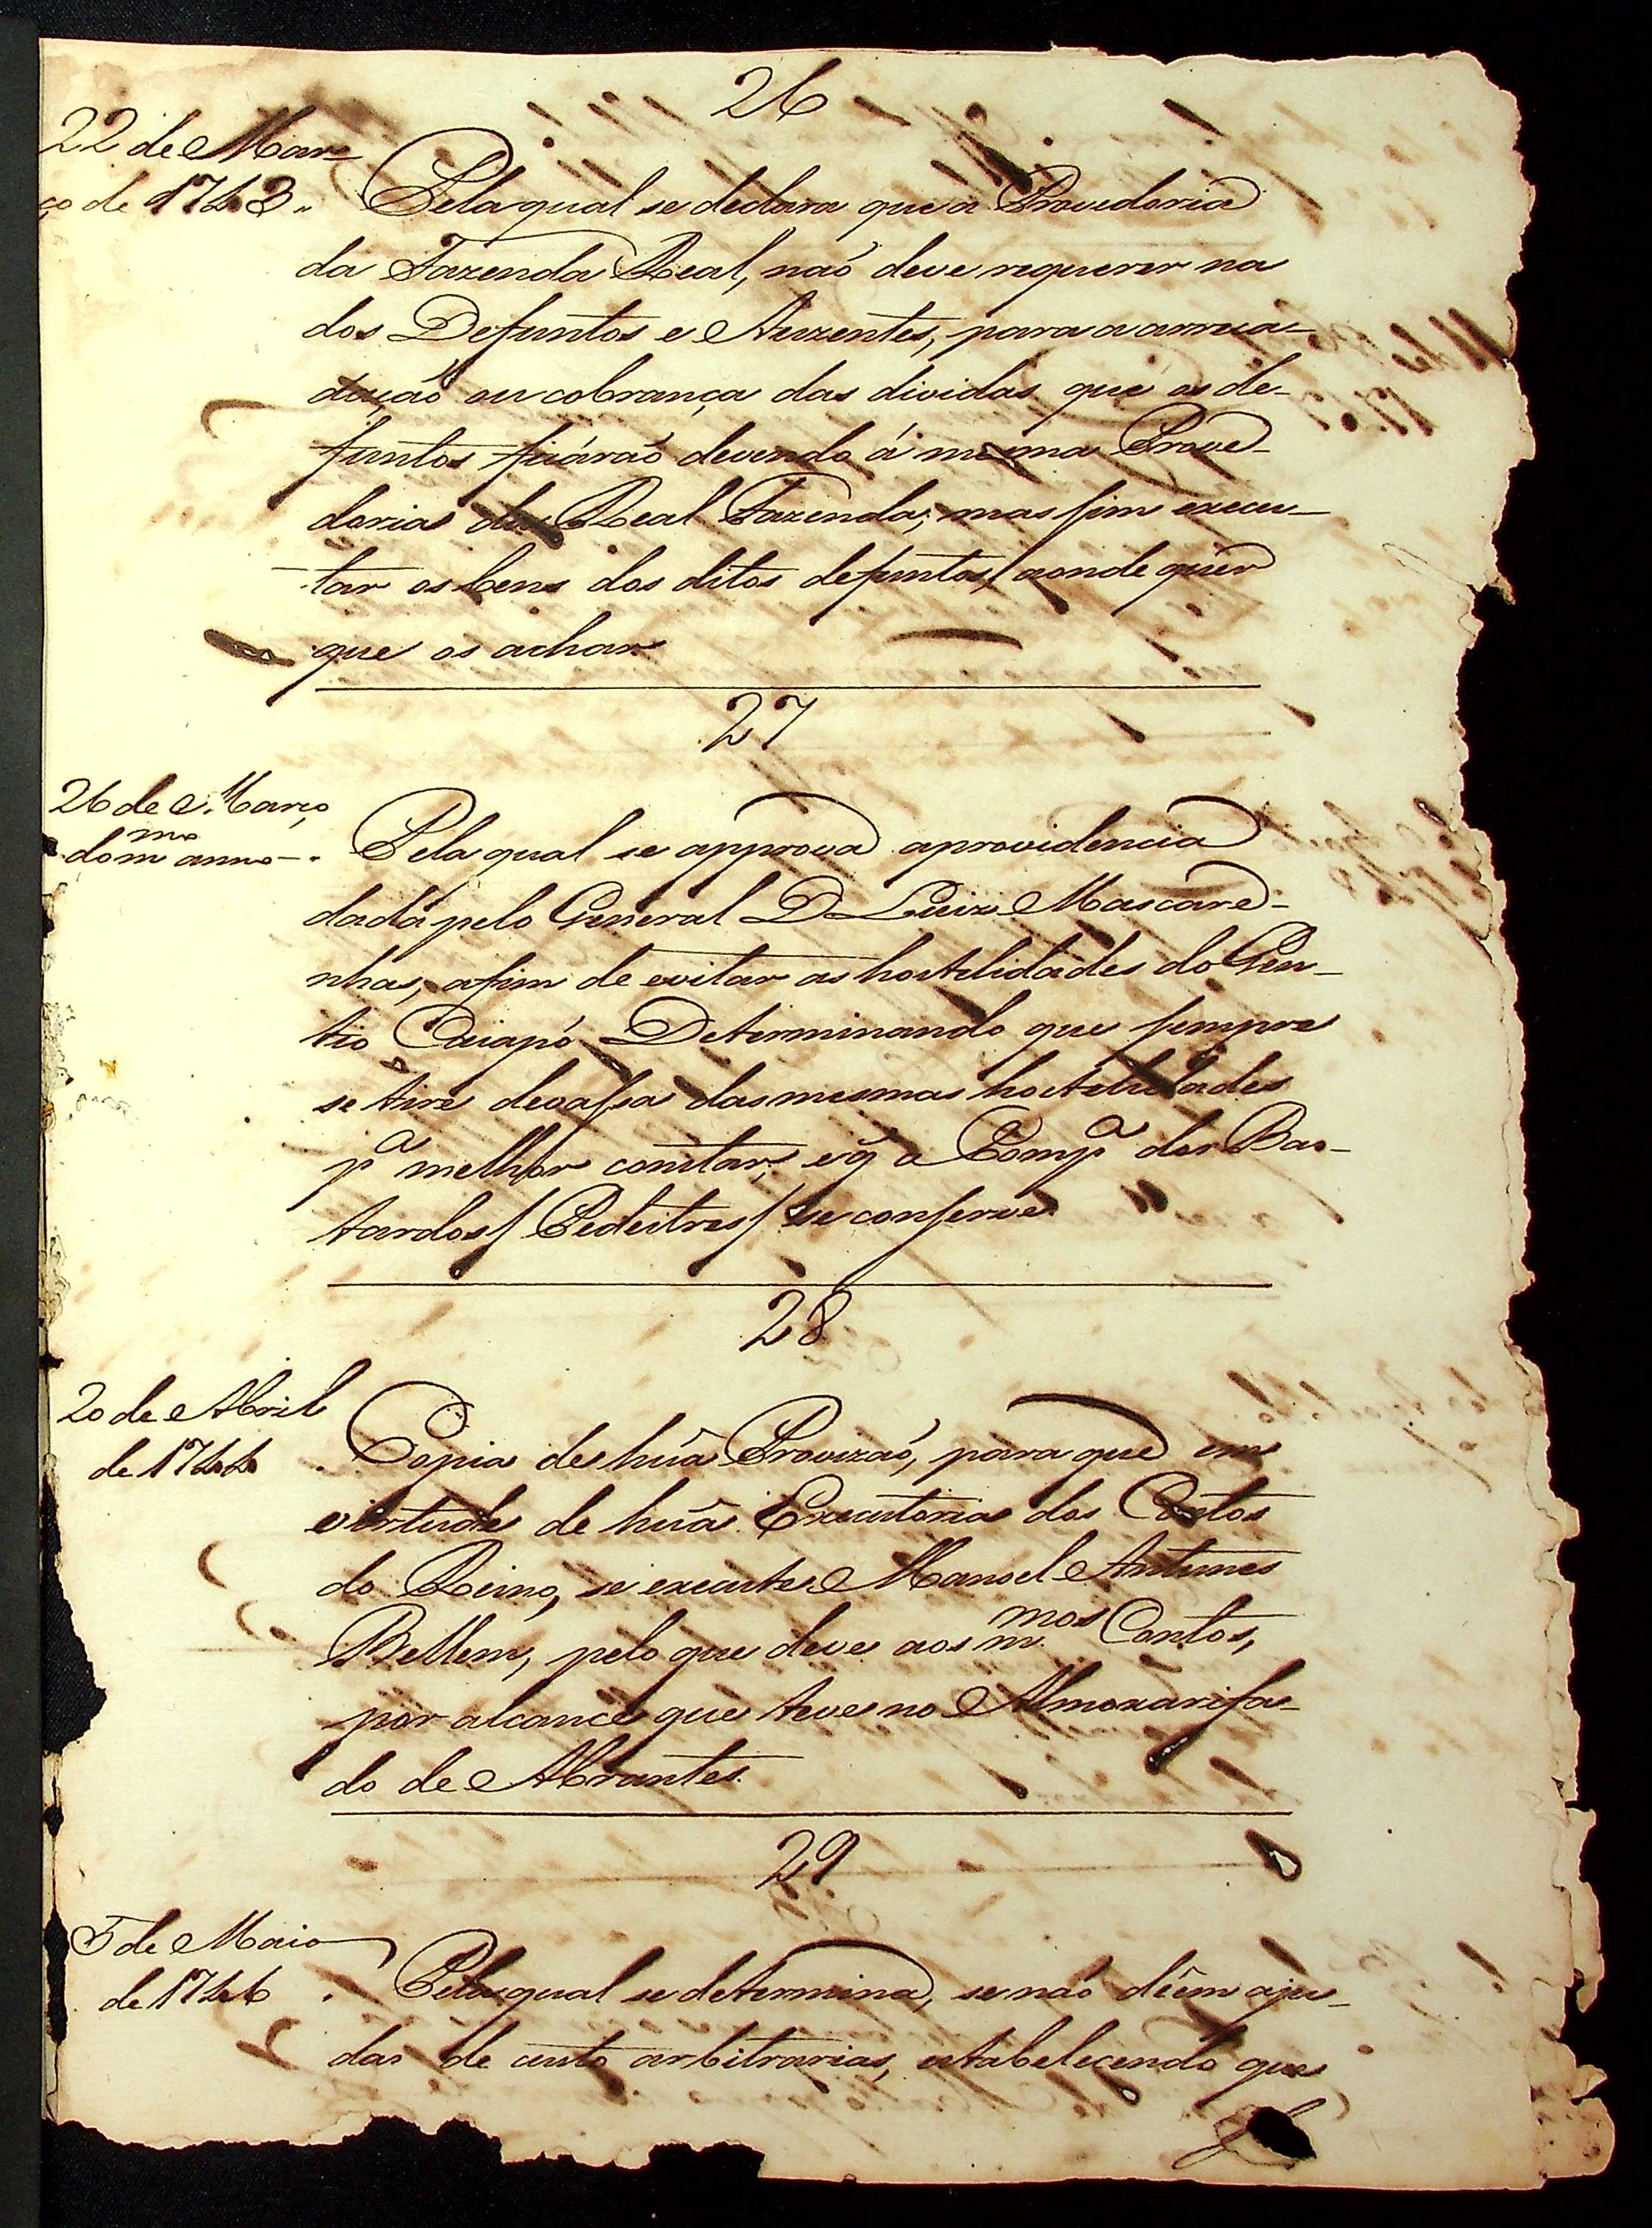 26
22 de Mar-
ço de 1743. Pela qual se declara que a Provedoria
da Fazenda Real, naõ deve requerer na
dos Defuntos e Auzentes, para a arreca-
daçaõ ou cobrança das dividas que os de-
funtos ficáraõ devendo á mesma Prove-
doria da Real Fazenda; mas sim execu-
tar os bens dos ditos defuntos, aonde quer
que os achar
27
26 de Março
do m.mo anno. Pela qual se approva a providencia
dada pelo General D Luiz Mascare-
nhas, afim de evitar as hostilidades do Gen-
tio Caiapó Determinando que sempre
se tire devassa das mesmas hostilidades
p.a melhor constar; e q̃ a Comp.a dos Bas-
tardos / Pedestres / se conserve.
28
20 de Abril
de 1744. Copia de hũa Provizaõ, para que em
virtude de hũa Executoria dos Contos
do Reino, se execute Manoel Antunes
Bellem, pelo que deve aos m.mos Contos,
por alcance que teve no Almoxarifa-
do de Abrantes.
29
5 de Maio
de 1746. Pela qual se determina, se naõ dêem aju-
das de custo arbitrarias, estabelecendo que